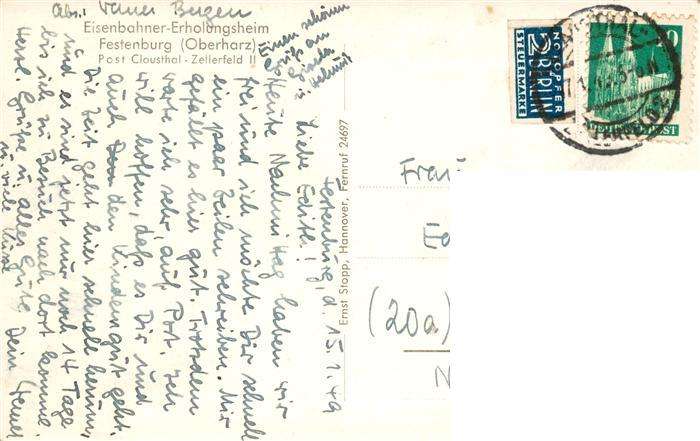 Abs.: Werner Bergen
Eisenbahner-Erholungsheim
Festenburg (Oberharz)
Post Clausthal-Zellerfeld II
Einen schönen
Gruß an
u. Helmut
Festenburg, d. 15.1.49
Liebe Edith!
Heute Nachmittag haben wir
frei und ich möchte Dir schnell
ein paar Zeilen schreiben. Mir
gefällt es hier gut. Trotzdem
warte ich sehr auf Post. Ich
will hoffen, daß es Dir und
auch den Kindern gut geht.
Die Zeit geht hier schnell herum,
und es sind jetzt nur noch 14 Tage
bis ich zu Besuch nach dort komme
Herzl. Grüße u. alles Gute Dein
u. viele Küsse
Ernst Stopp, Hannover, Fernruf 24697
NOTOPFER
2 BERLIN
STEUERMARKE
DEUTSCHE POST
Frau
(20a)
N